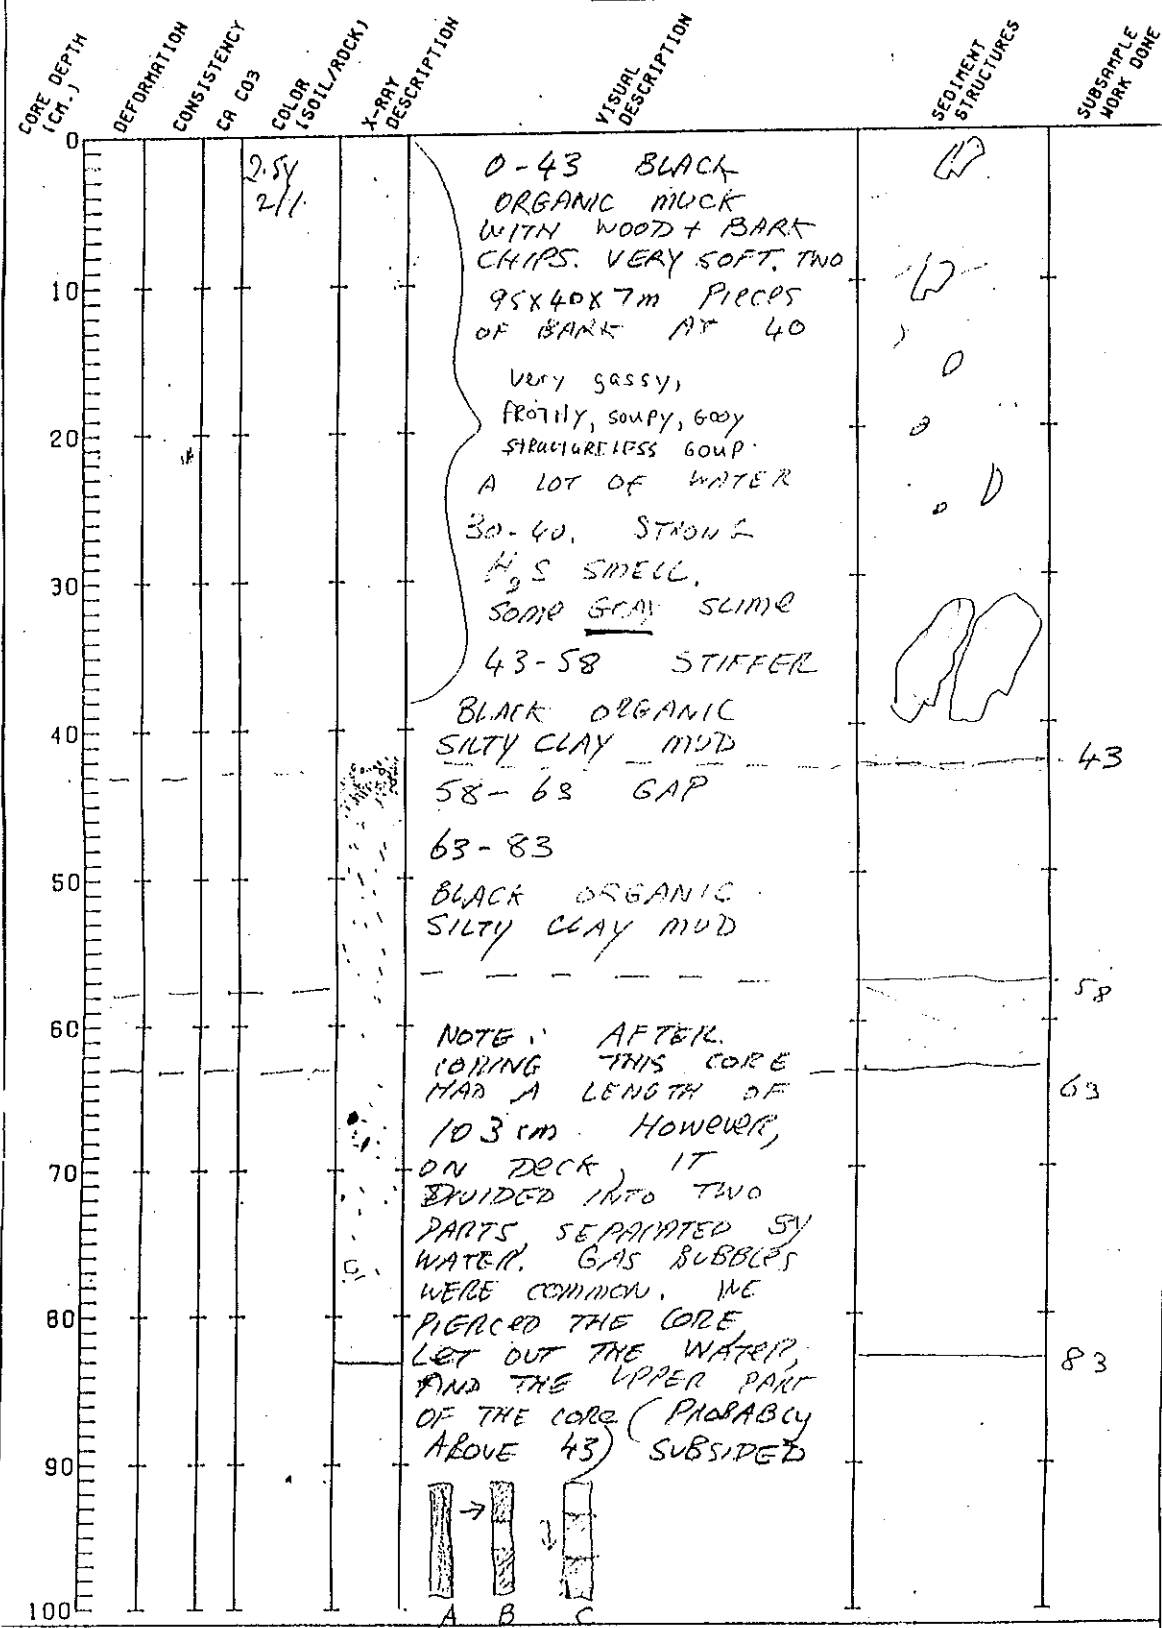 CORE DEPTH (CM.)
DEFORMATION
CONSISTENCY
CA CO3
COLOR (SOIL/ROCK)
X-RAY DESCRIPTION
VISUAL DESCRIPTION
SEDIMENT STRUCTURES
SUBSAMPLE WORK DONE
0
10
20
30
40
50
60
70
80
90
100
2.5Y
2/1
0-43 BLACK
ORGANIC MUCK
WITH WOOD + BARK
CHIPS. VERY SOFT. TWO
95X40X7m PIECES
OF BARK AT 40
very gassy,
FROTHY, SOUPY, GOOY
STRUCTURELESS GOUP.
A LOT OF WATER
30-40. STRONG
H2S SMELL.
SOME GRAY SLIME
43-58 STIFFER
BLACK ORGANIC
SILTY CLAY MUD
58-63 GAP
63-83
BLACK ORGANIC
SILTY CLAY MUD
NOTE: AFTER
CORING THIS CORE
HAD A LENGTH OF
103 cm. HOWEVER,
ON DECK, IT
DIVIDED INTO TWO
PARTS, SEPARATED BY
WATER. GAS BUBBLES
WERE COMMON. WE
PIERCED THE CORE,
LET OUT THE WATER,
AND THE UPPER PART
OF THE CORE (PROBABLY
ABOVE 43) SUBSIDED
A B C
43
58
63
83